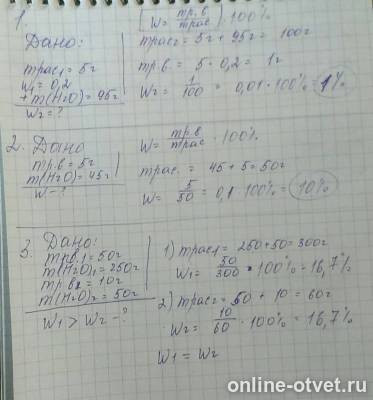 1.
[W = mр.в/mрас · 100%
Дано:
mрас₁ = 5г
w₁ = 0,2
+ m(H₂O) = 95г
w₂ = ?
mрас₂ = 5г + 95г = 100г
mр.в. = 5 · 0,2 = 1г
W₂ = 1/100 = 0,01 · 100% = 1%
2. Дано
mр.в = 5г
m(H₂O) = 45г
W - ?
W = mр.в/mрас · 100%
mрас. = 45 + 5 = 50г
W = 5/50 = 0,1 · 100% = 10%
3. Дано:
mр.в.1 = 50г
m(H₂O)₁ = 250г
mр.в2 = 10г
m(H₂O)₂ = 50г
W₁ > W₂ - ?
1) mрас₁ = 250 + 50 = 300г
W₁ = 50/300 · 100% = 16,7%
2) mрас₂ = 50 + 10 = 60г
W₂ = 10/60 · 100% = 16,7%
W₁ = W₂
online-otvet.ru